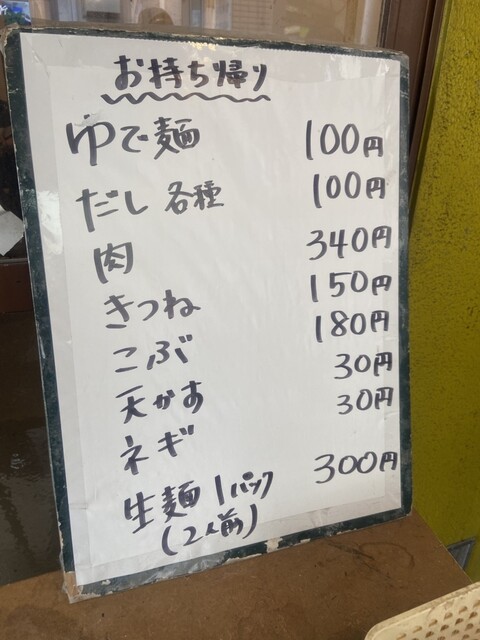 お持ち帰り
ゆで麺 100円
だし 各種 100円
肉 340円
きつね 150円
こぶ 180円
天かす 30円
ネギ 30円
生麺 1パック 300円
(2人前)